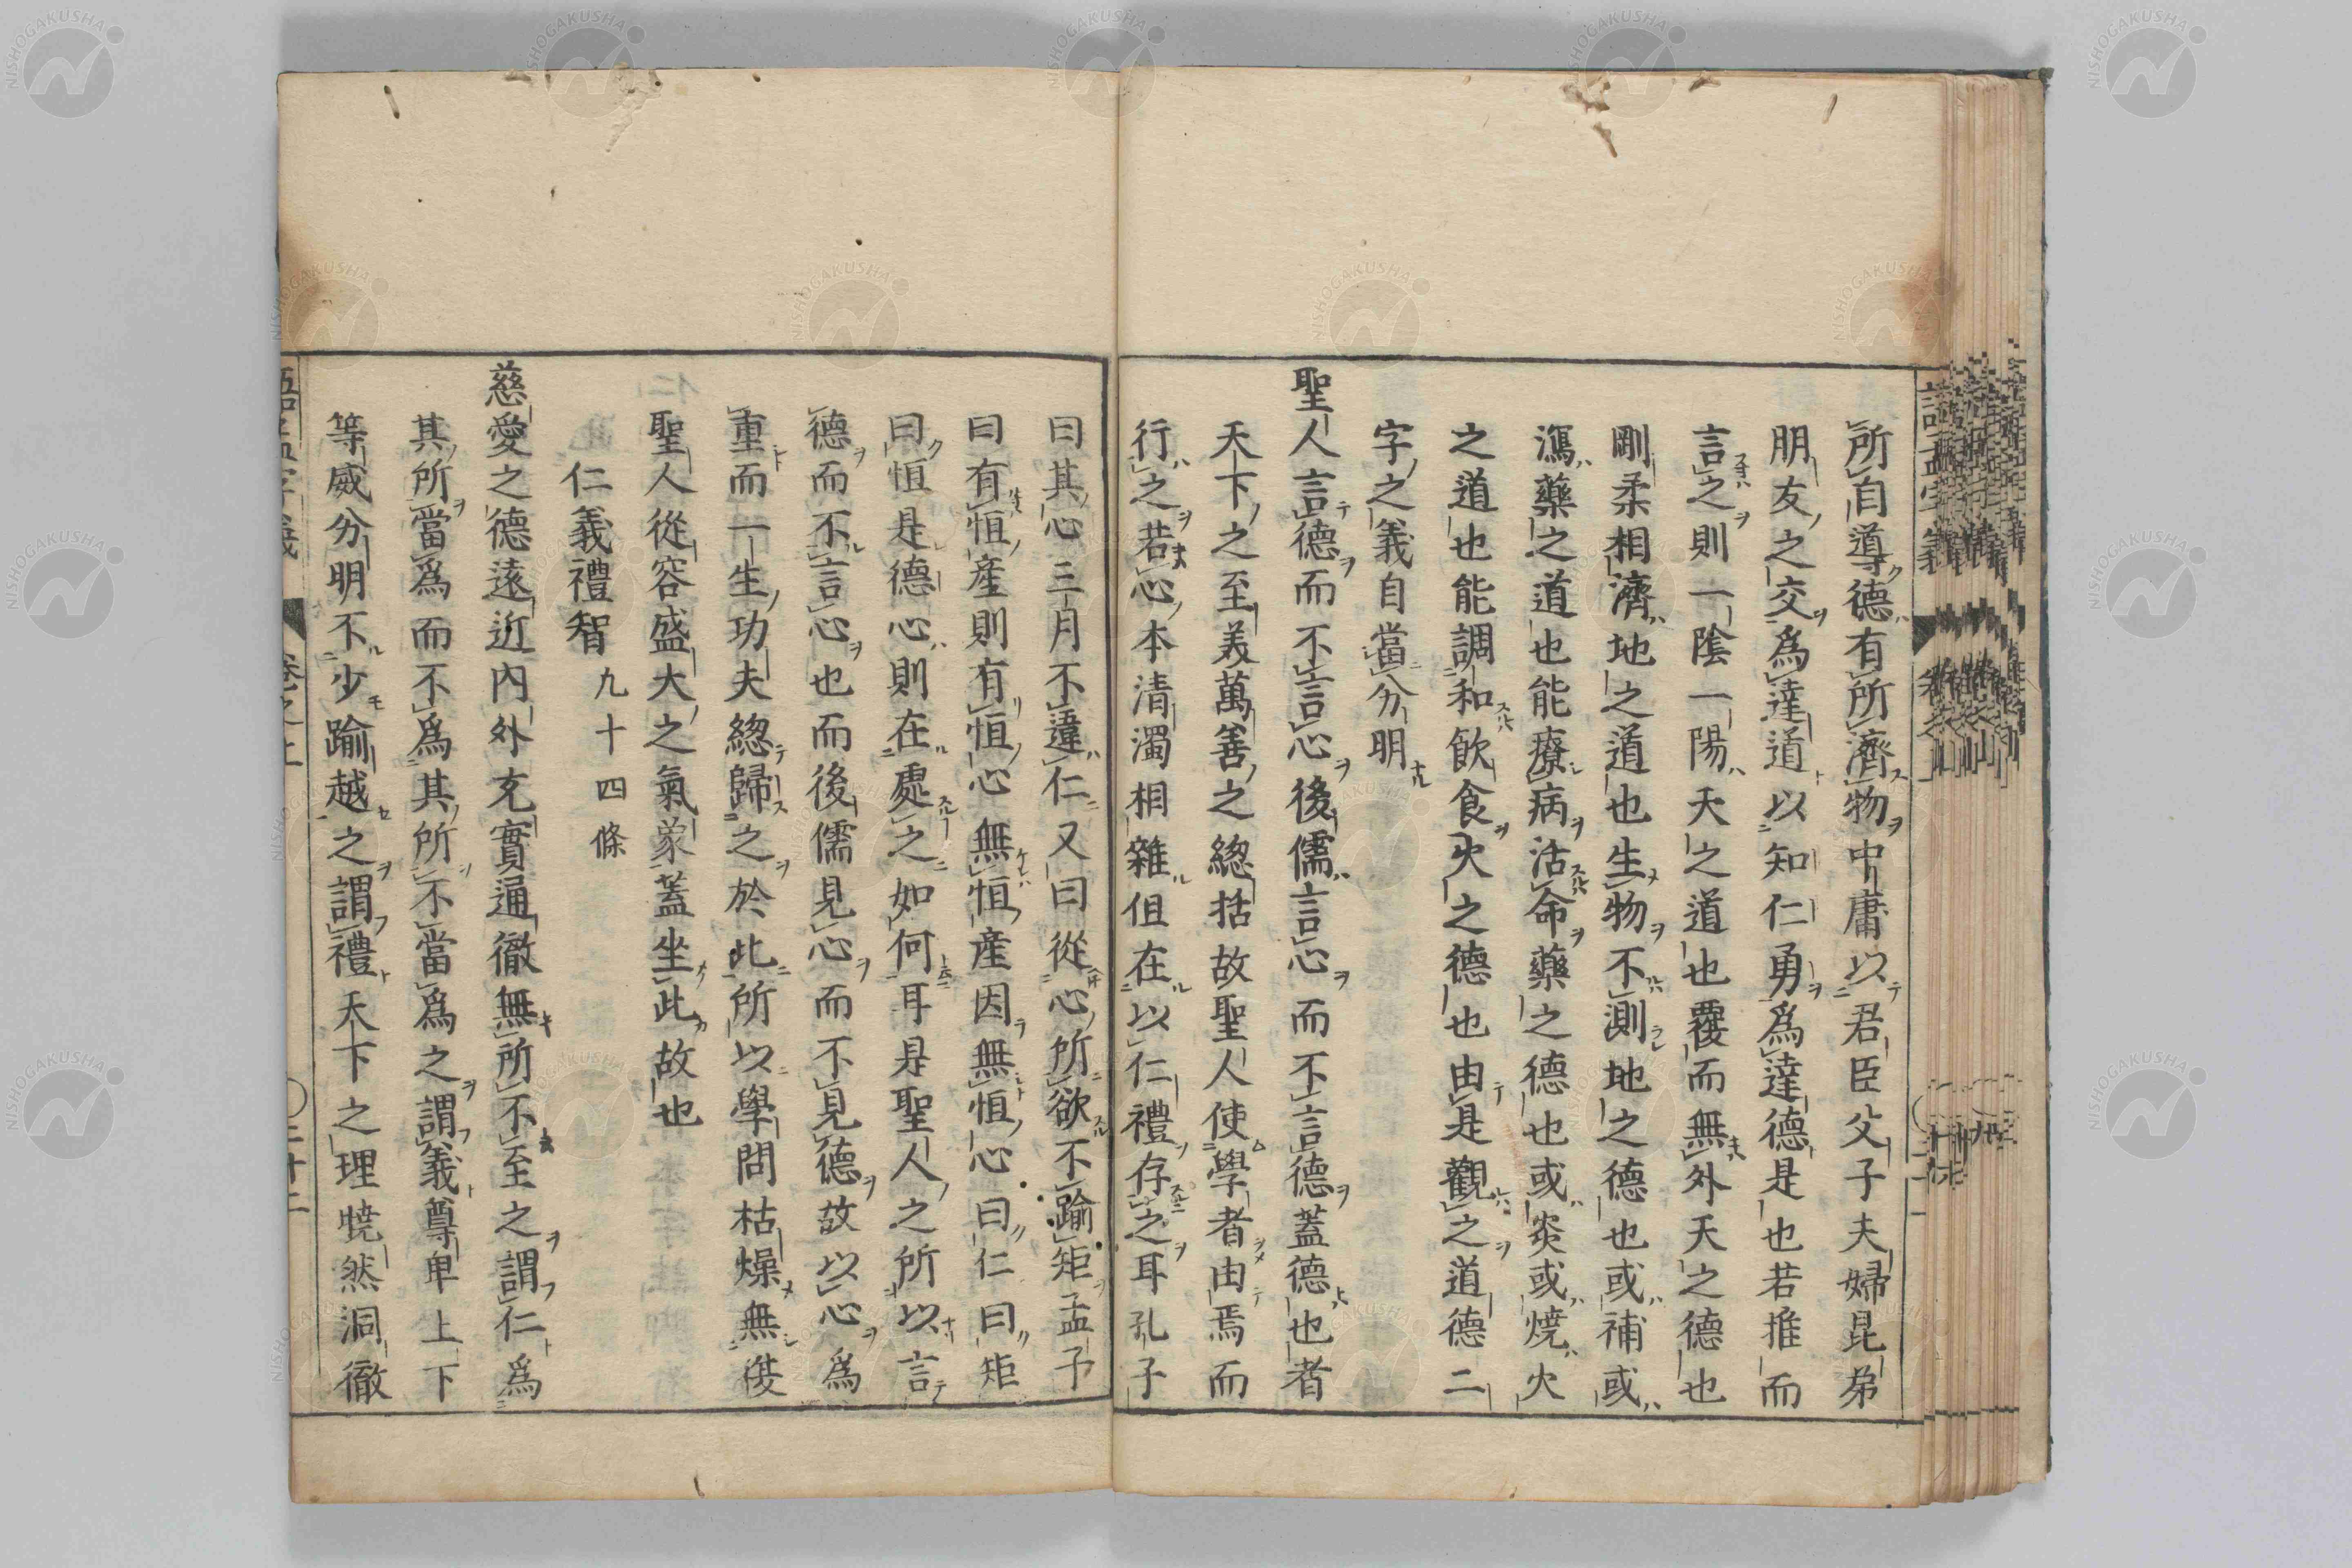 所自導德有所濟物中庸以君臣父子夫婦昆弟
朋友之交爲達道以知仁勇爲達德是也若推而
言之則一陰一陽天之道也覆而無外天之德也
剛柔相濟地之道也生物不測地之德也或補或
瀉藥之道也能療病活命藥之德也或炎或燒火
之道也能調和飲食火之德也由是觀之道德二
字之義自當分明
聖人言德而不言心後儒言心而不言德蓋德也者
天下之至美萬善之總括故聖人使學者由焉而
行之若心本清濁相雜但在以仁禮存之耳孔子
曰其心三月不違仁又曰從心所欲不踰矩孟子
曰有恒產則有恒心無恒產因無恒心曰仁曰矩
曰恒是德心則在處之如何耳是聖人之所以言
德而不言心也而後儒見心而不見德故以心爲
重而一生功夫總歸之於此所以學問枯燥無復
聖人從容盛大之氣象蓋坐此故也
仁義禮智 九十四條
慈愛之德遠近內外充實通徹無所不至之謂仁爲
其所當爲而不爲其所不當爲之謂義尊卑上下
等威分明不少踰越之謂禮天下之理曉然洞徹
語孟字義 卷之上
NISHOGAKUSHA